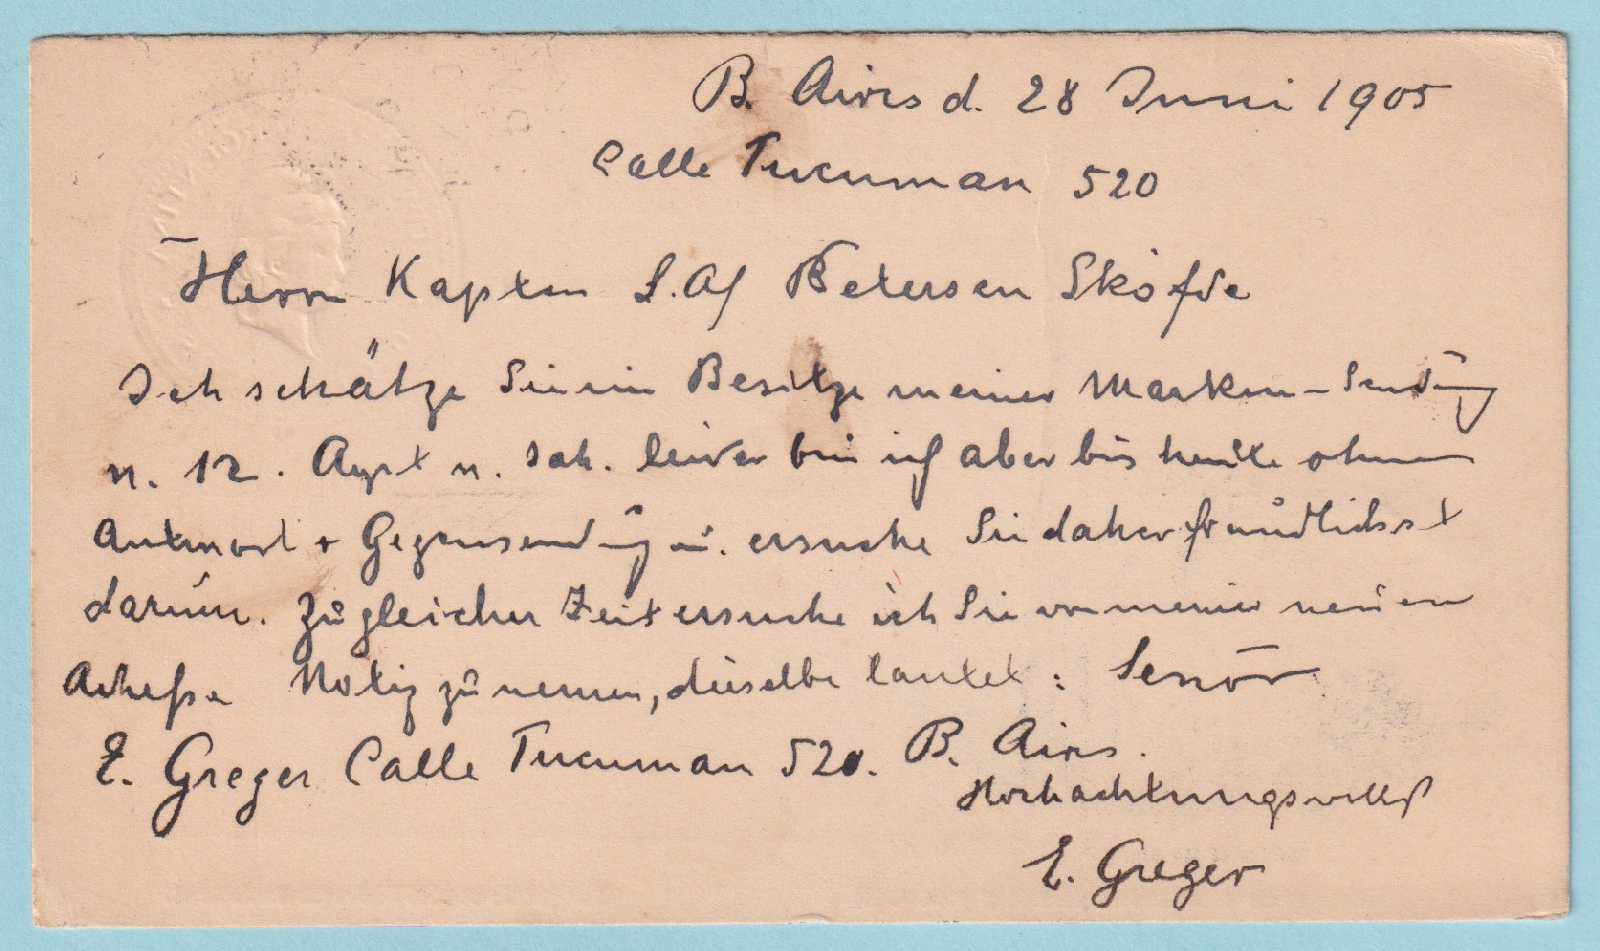 B. Aires d. 28 Juni 1905
Calle Tucuman 520
Herrn Kapten S. Af Petersen Sköfde
Ich schätze Sie im Besitze meiner Marken-Sendung
v. 12. v. leider bin ich aber bis heute ohne
Antwort + Gegensendung u. ersuche Sie daher freundlichst
darum. Zu gleicher Zeit ersuche ich Sie von meiner neuen
Adresse Notiz zu nemen, dieselbe lautet: Senõr
E. Greger Calle Tucuman 520. B. Aires.
Hochachtungsvollst
E. Greger